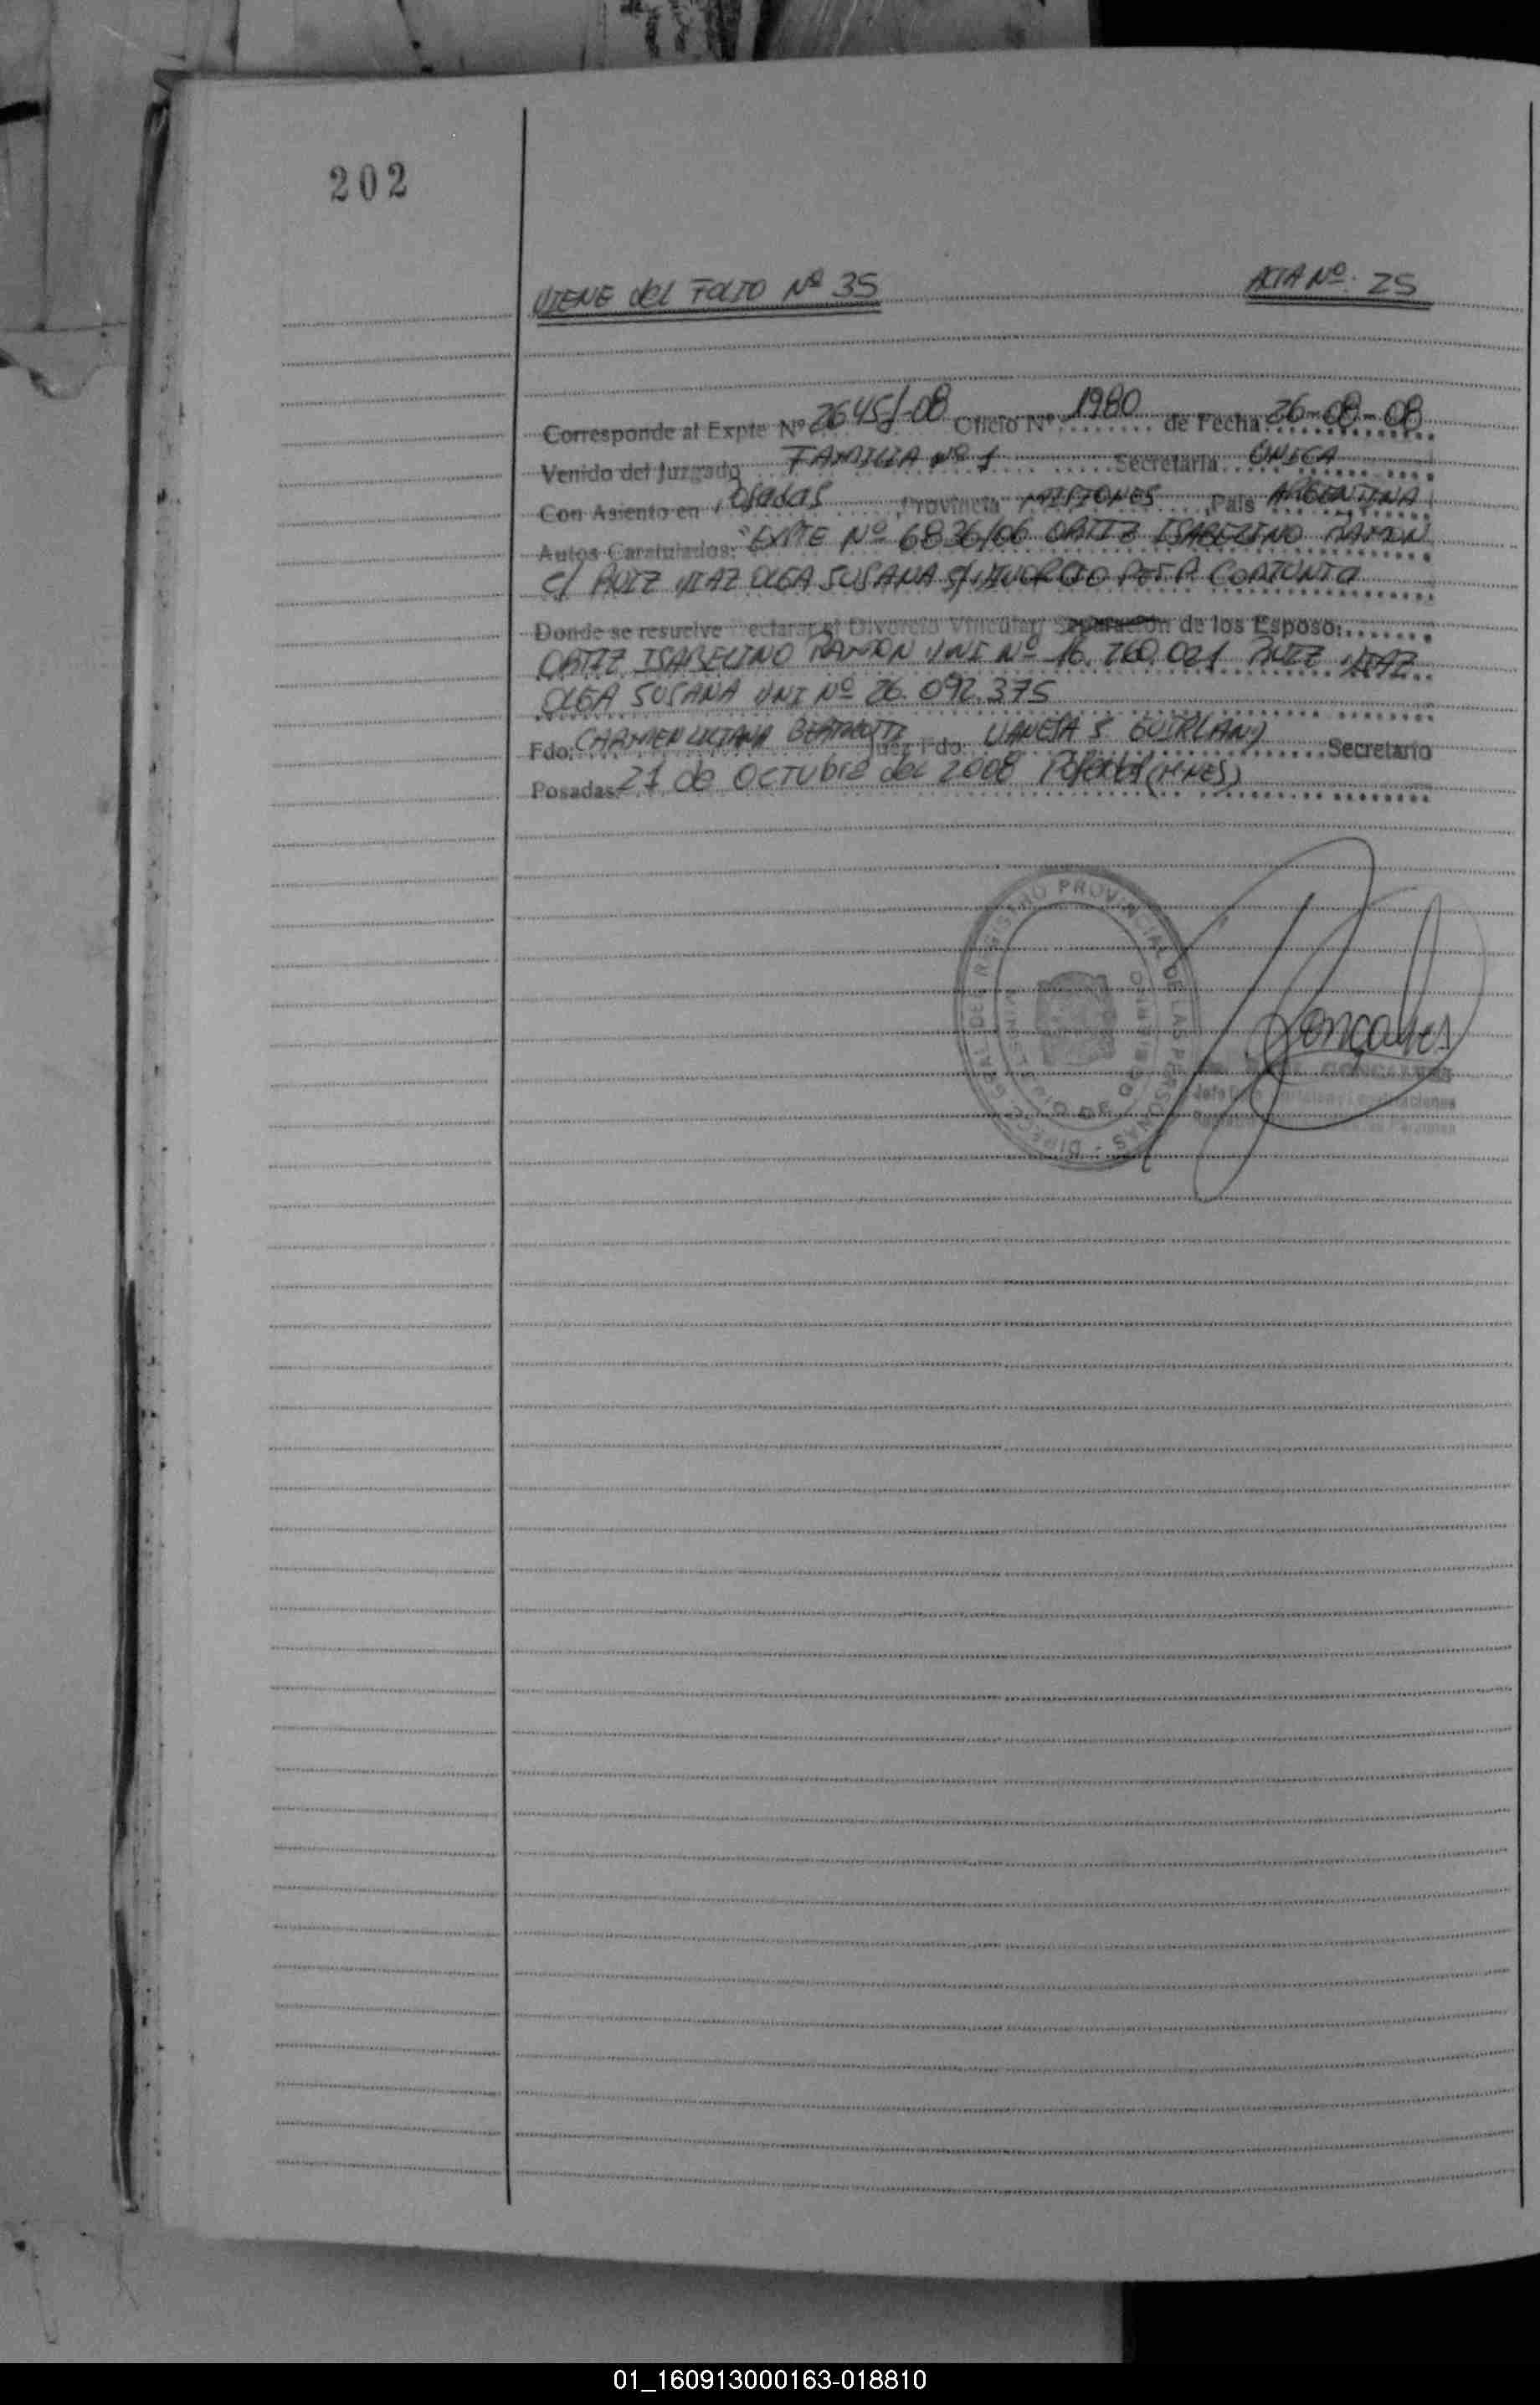 202
VIENE del FOLIO Nº 35
ACTA Nº. 25
Corresponde al Expte Nº 2645/-08 Oficio Nº 1980 de Fecha 26-08-08
Venido del Juzgado FAMILIA Nº 1 Secretaría ÚNICA
Con Asiento en Posadas, Provincia MISIONES, País ARGENTINA
Autos Caratulados: "EXPTE Nº 6836/06 ORTIZ ISABELINO RAMON
C/ RUIZ DIAZ OLGA SUSANA S/ DIVORCIO PET.P. CONJUNTA
Donde se resuelve Declarar el Divorcio Vincular/ Separación de los Esposo:
ORTIZ ISABELINO RAMON DNI Nº 16.260.021 RUIZ DIAZ
OLGA SUSANA DNI Nº 26.092.375
Fdo: CARMEN LUCIANA Juez Fdo. VANESA S Secretario
Posadas 27 de OCTUBRE del 2008 (MNES)
DIRECCION GENERAL DEL REGISTRO PROVINCIAL DE LAS PERSONAS
MINISTERIO DE GOBIERNO
Gonçalves
GONÇALVES
01_160913000163-018810